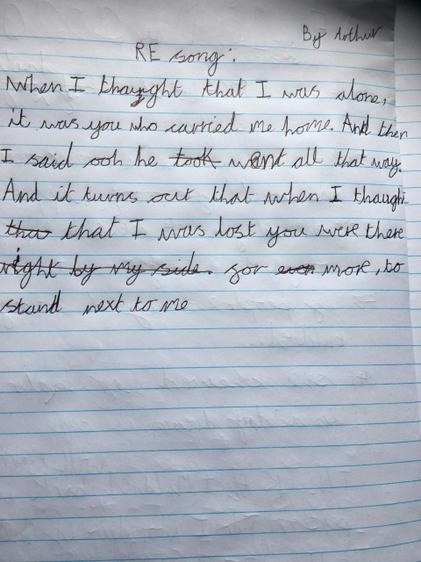 By Arthur
RE song:
When I thought that I was alone,
it was you who carried me home. And then
I said ooh he took went all that way.
And it turns out that when I thought
tha that I was lost you were there
right by my side. for even more, to
stand next to me